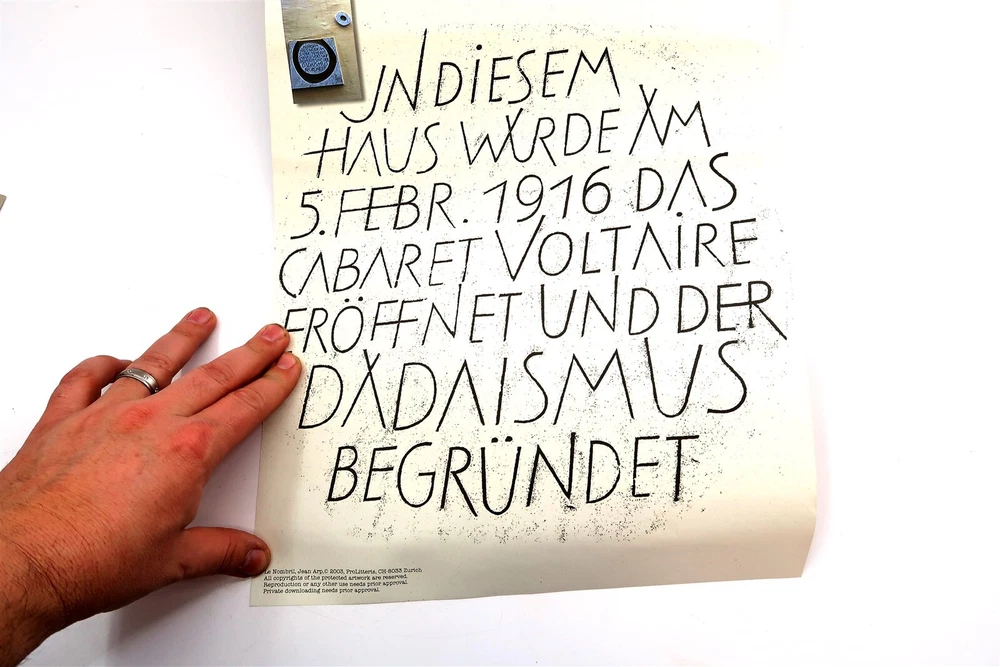 IN DIESEM
HAUS WURDE AM
5. FEBR. 1916 DAS
CABARET VOLTAiRE
ERÖFFNET UND DER
DADAISMUS
BEGRÜNDET
Le Nombril, Jean Arp,© 2003, ProLitteris, CH-8033 Zurich
All copyrights of the protected artwork are reserved.
Reproduction or any other use needs prior approval.
Private downloading needs prior approval.